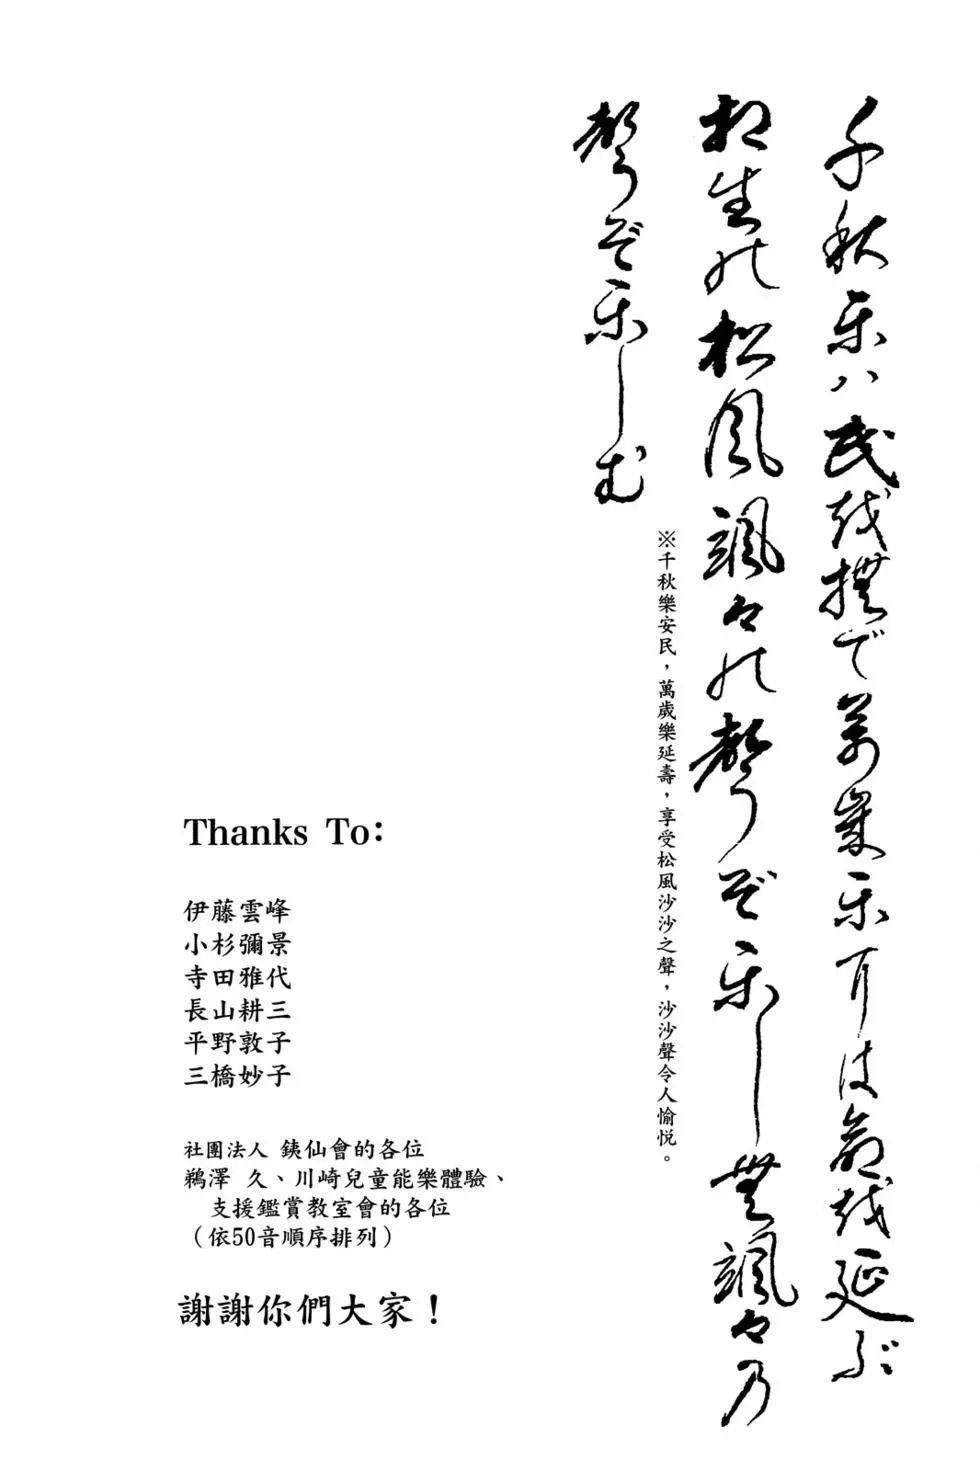 千秋楽ハ民を撫で萬歳楽には命を延ぶ
相生の松風颯々の聲ぞ楽しむ颯々乃
聲ぞ楽しむ
※千秋樂安民，萬歲樂延壽，享受松風沙沙之聲，沙沙聲令人愉悅。
Thanks To：
伊藤雲峰
小杉彌景
寺田雅代
長山耕三
平野敦子
三橋妙子
社團法人 銕仙會的各位
鵜澤 久、川崎兒童能樂體驗、
支援鑑賞教室會的各位
（依50音順序排列）
謝謝你們大家！